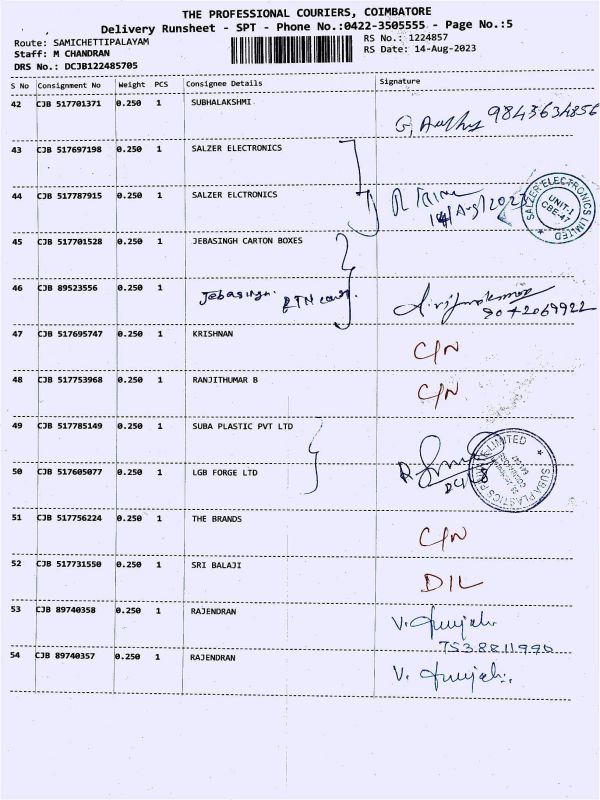 THE PROFESSIONAL COURIERS, COIMBATORE
Delivery Runsheet - SPT - Phone No.:0422-3505555 - Page No.:5
Route: SAMICHETTIPALAYAM
RS No.: 1224857
Staff: M CHANDRAN
RS Date: 14-Aug-2023
DRS No.: DCJB122485705
S No Consignment No Weight PCS Consignee Details Signature
42 CJB 517701371 0.250 1 SUBHALAKSHMI
9843634856
43 CJB 517697198 0.250 1 SALZER ELECTRONICS
44 CJB 517787915 0.250 1 SALZER ELCTRONICS
14/Aug/2023
SALZER ELECTRONICS LIMITED
UNIT-1
CBE-47
45 CJB 517701528 0.250 1 JEBASINGH CARTON BOXES
46 CJB 89523556 0.250 1 Jebasingh
9042069922
47 CJB 517695747 0.250 1 KRISHNAN C/N
48 CJB 517753968 0.250 1 RANJITHUMAR B C/N
49 CJB 517785149 0.250 1 SUBA PLASTIC PVT LTD
50 CJB 517605077 0.250 1 LGB FORGE LTD
SUBA PLASTICS PRIVATE LIMITED
51 CJB 517756224 0.250 1 THE BRANDS C/N
52 CJB 517731550 0.250 1 SRI BALAJI D/L
53 CJB 89740358 0.250 1 RAJENDRAN
7538811990
54 CJB 89740357 0.250 1 RAJENDRAN